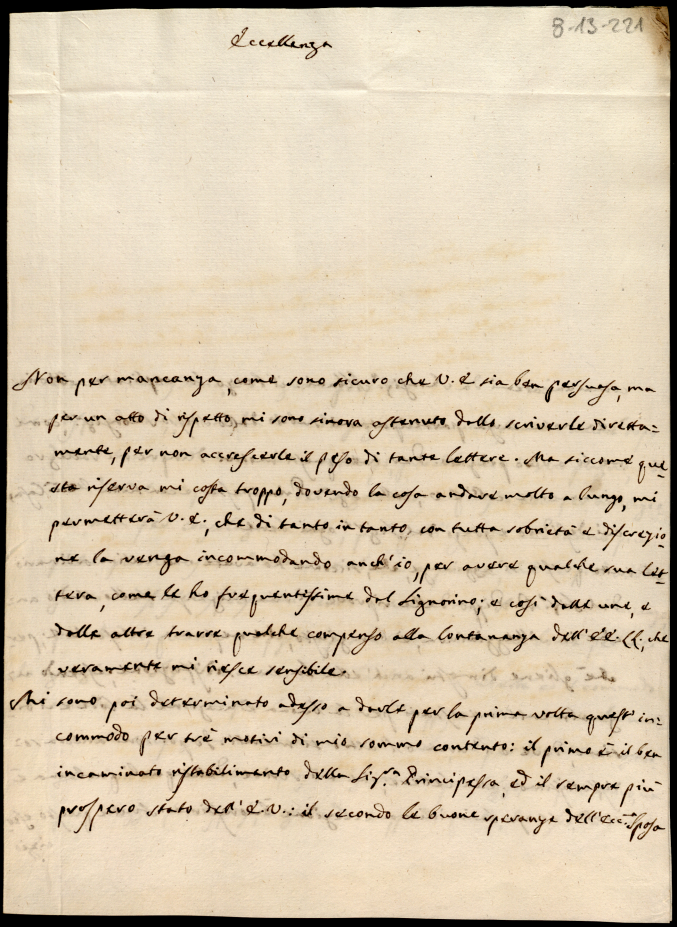 8-13-221
Eccellenza
Non per mancanza, come sono sicuro che V. E. sia ben persuasa, ma
per un atto di rispetto mi sono sinora astenuto dallo scriverle diretta=
mente, per non accrescerle il peso di tante lettere. Ma siccome que=
sta riserva mi costa troppo, dovendo la cosa andare molto a lungo, mi
permetterà V. E., che di tanto in tanto, con tutta sobrietà e discrezio=
ne la venga incommodando anch'io, per avere qualche sua let=
tera, come le ho frequentissime dal Signorino; e così dalle une, e
dalle altre trarre qualche compenso alla lontananza dell'EE. LL., che
veramente mi riesce sensibile.
Mi sono poi determinato adesso a darle per la prima volta quest'in=
commodo per trè motivi di mio sommo contento: il primo è il ben
incaminato ristabilimento della Sig.ra Principessa, ed il sempre più
prospero stato dell'E. V.: il secondo le buone speranze dell'Ecc.ma Sposa